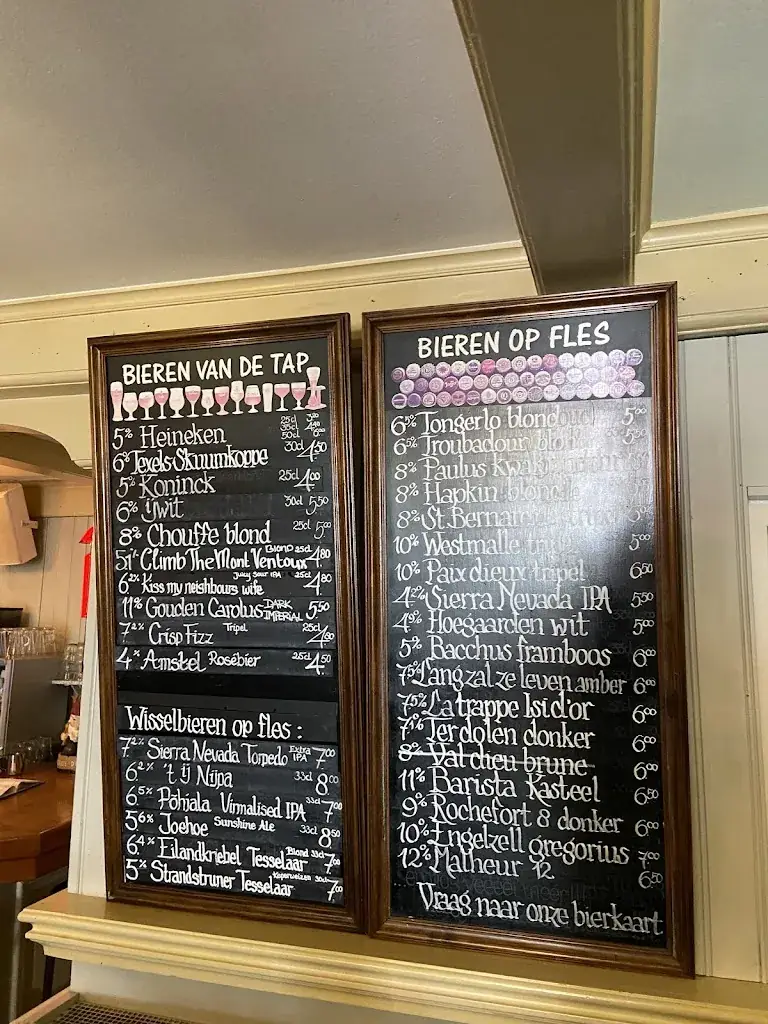 BIEREN VAN DE TAP
25cl 3,20
35cl 4,40
5% Heineken 50cl 6,00
6% Texels Skuumkoppe 30cl 4,50
5% Koninck 25cl 4,00
6% ijwit 30cl 5,50
8% Chouffe blond 25cl 5,00
5,1% Climb The Mont Ventoux BLOND 25cl 4,80
6,2% Kiss my neighbours wife Juicy Sour IPA 25cl 4,80
11% Gouden Carolus DARK IMPERIAL 5,50
7,2% Crisp Fizz Tripel 25cl 4,80
4% Amstel Rosébier 25cl 4,50
Wisselbieren op fles :
7,2% Sierra Nevada Torpedo Extra IPA 7,00
6,2% 't ij Nijpa 33cl 8,00
6,5% Pohjala Virmalised IPA 33cl 7,00
5,6% Joehoe Sunshine Ale 33cl 8,50
6,4% Eilandkriebel Tesselaar Blond 33cl 7,00
5% Strandstruner Tesselaar 30cl 7,00
BIEREN OP FLES
6,5% Tongerlo blond 5,00
6,5% Troubadour blond 5,50
8% Paulus Kwak
8% Hapkin blond
8% St.Bernardus
10% Westmalle tripel 5,00
10% Paix dieux tripel 6,50
4,2% Sierra Nevada IPA 5,50
4,9% Hoegaarden wit 5,00
5% Bacchus framboos 6,00
7,5% Lang zal ze leven amber 6,00
7,5% La trappe Isid'or 6,00
7,1% Ter dolen donker 6,00
8% Val dieu brune 6,00
11% Barista Kasteel 6,50
9% Rochefort 8 donker 6,00
10% Engelzell gregorius 7,00
12% Malheur 12 6,50
Vraag naar onze bierkaart